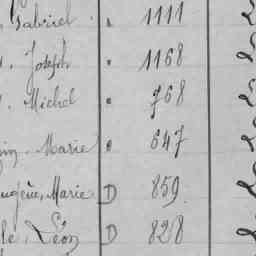 Gabriel " 1111
Joseph " 1168
Michel " 768
Marie " 647
Eugène, Marie D 859
Léon D 828